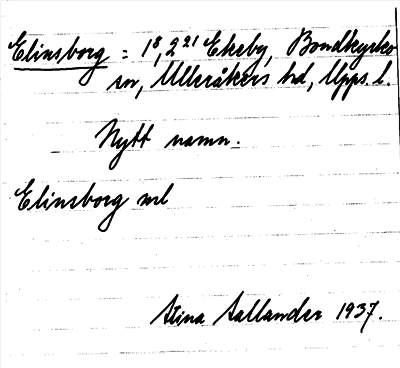 Elinsborg = 1⁸, 2²¹ Ekeby, Bondkyrko
sn, Ulleråkers hd, Upps. l.
Nytt namn.
Elinsborg ml
Stina Sallander 1937.